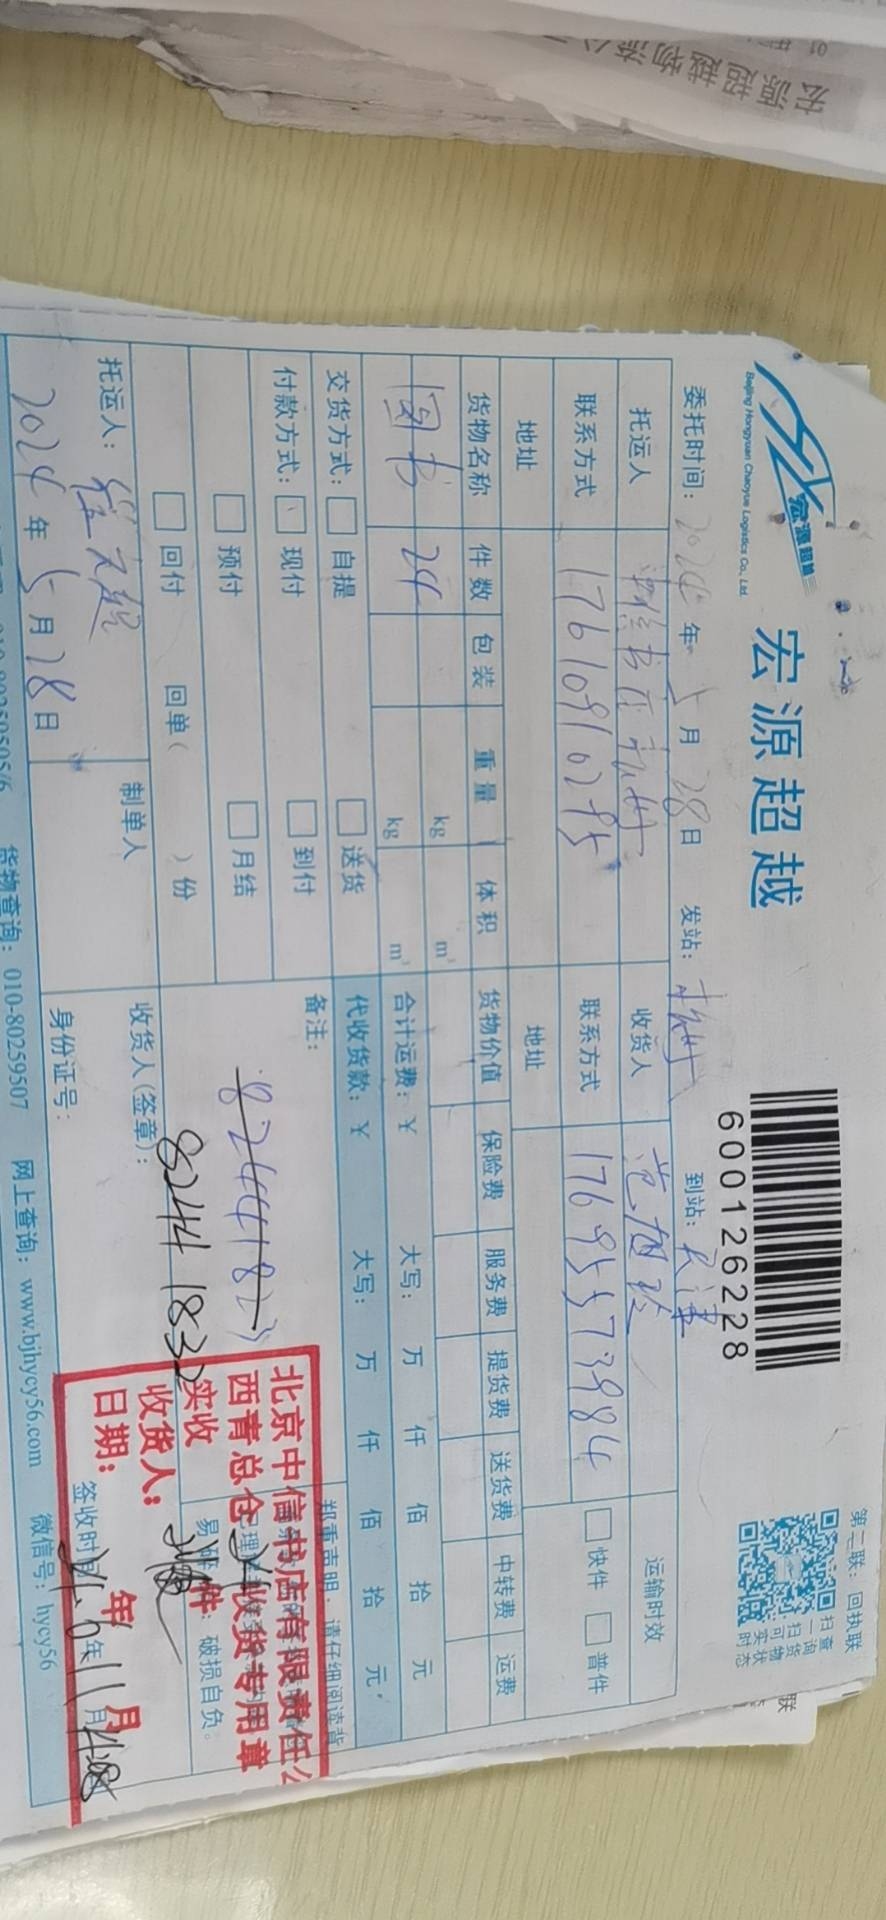 宏源超越物流公
宏源超越
Beijing Hongyuan Chaoyue Logistics Co., Ltd.
宏源超越
600126228
第二联：回执联
扫一扫
查询货物
可实时状态
联
委托时间：2024年5月28日 发站： 到站：天津
托运人 收货人 范旭玲 运输时效
联系方式 17610910295 联系方式 17695573984 快件 普件
地址 地址
货物名称 件数 包装 重量 体积 货物价值 保险费 服务费 提货费 送货费 中转费 运费
图书 24 kg m³
kg m³ 合计运费：￥ 大写： 万 仟 佰 拾 元
交货方式： 自提 送货 代收货款：￥ 大写： 万 仟 佰 拾 元
付款方式： 现付 到付 备注：
预付 月结 8244183
回付 回单（ ）份 8244183
郑重声明：请仔细阅读背
破损自负。
托运人：
2024年5月28日
制单人
收货人（签章）：
身份证号：
签收时间 年11月
北京中信书店有限责任公
西青总仓收货专用章
实收 件
收货人：
日期： 年 月
货物查询：010-80259507 网上查询：www.bjhycy56.com 微信号：hycy56